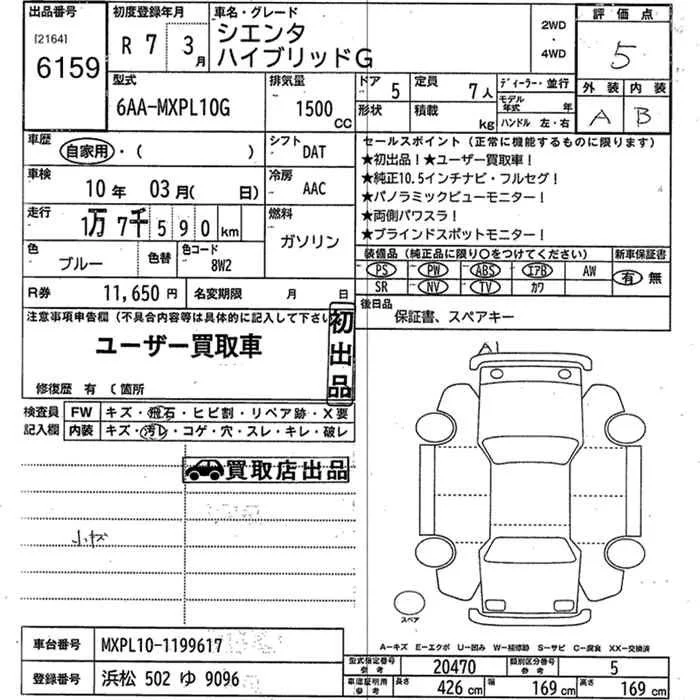 出品番号 [2164] 6159
初度登録年月 R 7 3月
車名・グレード シエンタ ハイブリッドG
2WD ・ 4WD
評価点 5
外装 内装
A B
型式 6AA-MXPL10G
排気量 1500 CC
ドア 5
定員 7人
形状
積載 kg
ディーラー・並行
モデル年式 年
ハンドル 左・右
車歴 自家用・( )
シフト DAT
車検 10年 03月( 日)
冷房 AAC
走行 1万7千590km
燃料 ガソリン
色 ブルー
色替
色コード 8W2
セールスポイント (正常に機能するものに限ります)
★初出品!★ユーザー買取車!
★純正10.5インチナビ・フルセグ!
★パノラミックビューモニター!
★両側パワスラ!
★ブラインドスポットモニター!
装備品 (純正品に限り○をつけてください)
新車保証書
PS PW ABS エアB AW
SR NV TV カワ
有 無
R券 11,650円
名変期限 月 日
後日品
保証書、スペアキー
注意事項申告欄 (不具合内容等は具体的に記入して下さい
ユーザー買取車
初出品
修復歴 有 (箇所
検査員記入欄
FW キズ・飛石・ヒビ割・リペア跡・X要
内装 キズ・汚レ・コゲ・穴・スレ・キレ・破レ
買取店出品
小キズ
A1
スペア
A-キズ E-エクボ U-凹み W-補修跡 S-サビ C-腐食 XX-交換済
車台番号 MXPL10-1199617
登録番号 浜松 502 ゆ 9096
型式指定番号 参考 20470
類別区分番号 参考 5
車庫証明用 参考 長さ 426 cm 幅 169 cm 高さ 169 cm